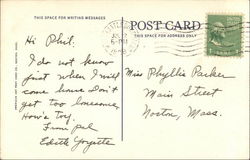 THIS SPACE FOR WRITING MESSAGES
POST CARD
THIS SPACE FOR ADDRESS ONLY
Hi Phil.
I do not know
just when I will
come home Don't
get too lonesome,
How's Tony.
From pal
Edith
Miss Phyllis Parker
Main Street
Norton, Mass.